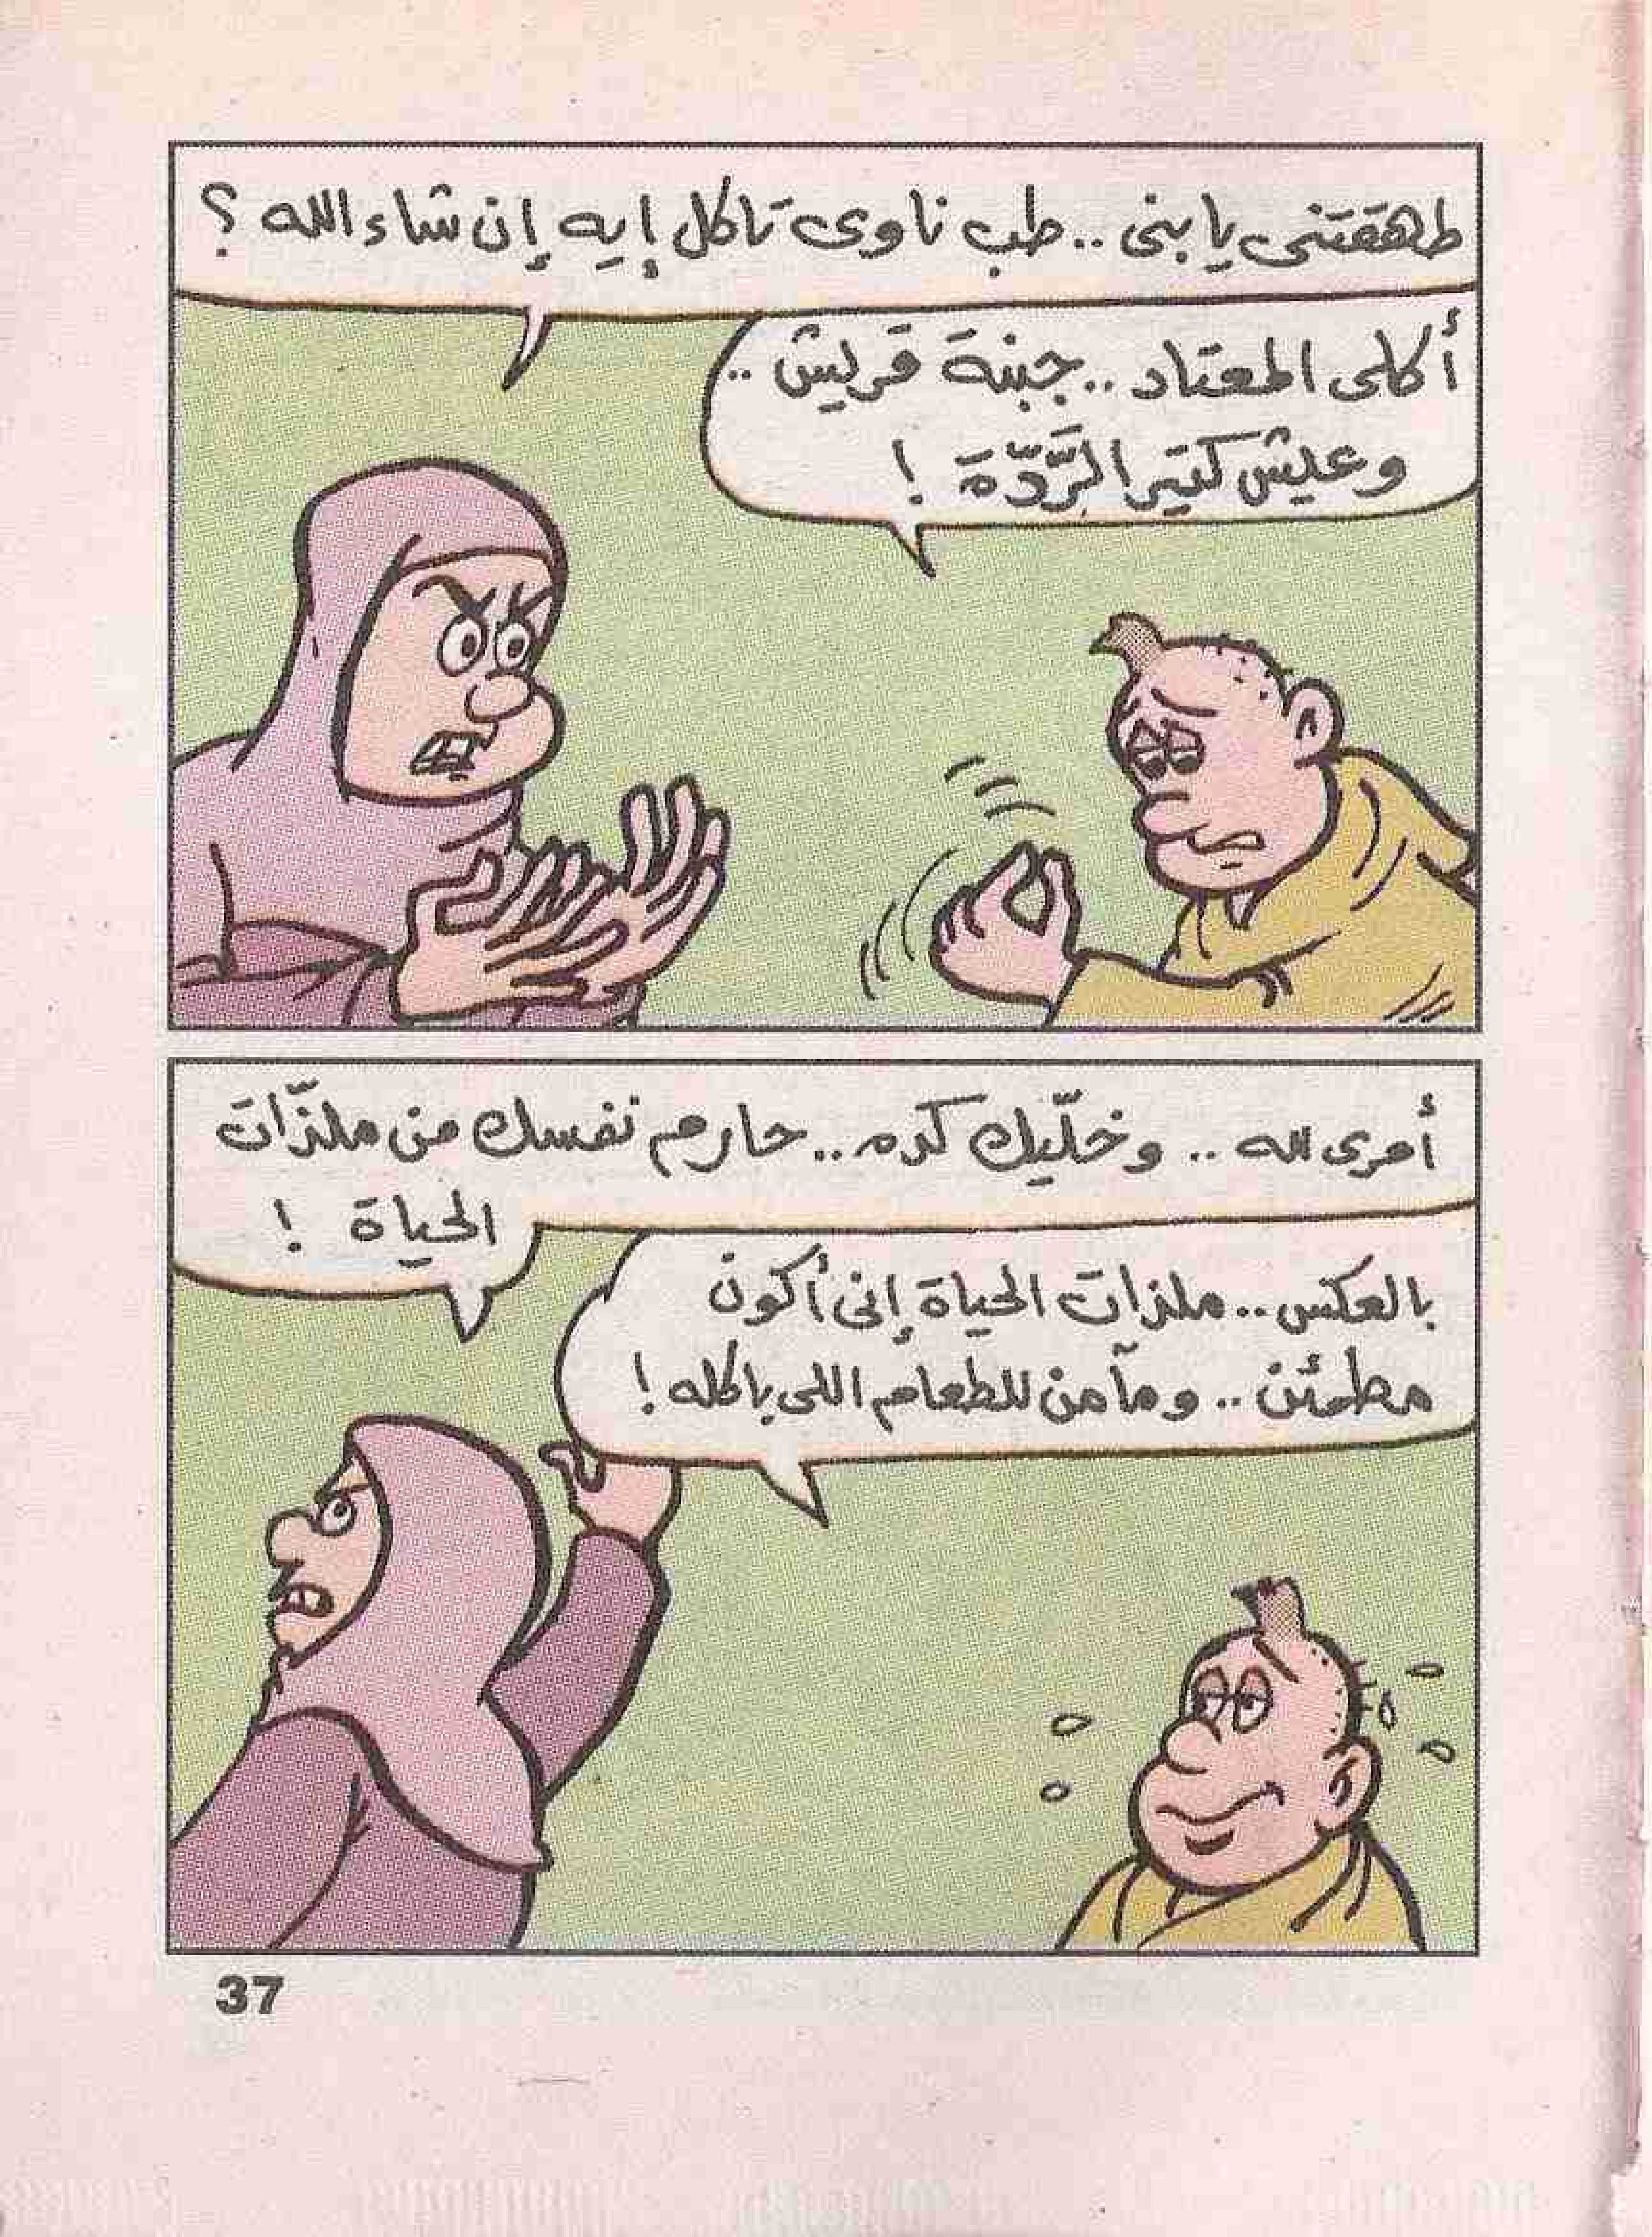 طهقتنى يا بنى .. طب ناوى تاكل إيه إن شاء الله ؟
أكلى المعتاد .. جبنة قريش ..
وعيش كتير الرَّدّة !
أمرى لله .. وخلّيك كده .. حارم نفسك من ملذّات
الحياة !
بالعكس .. ملذات الحياة إنى أكون
مطمئن .. ومآمن للطعام اللى باكله !
37